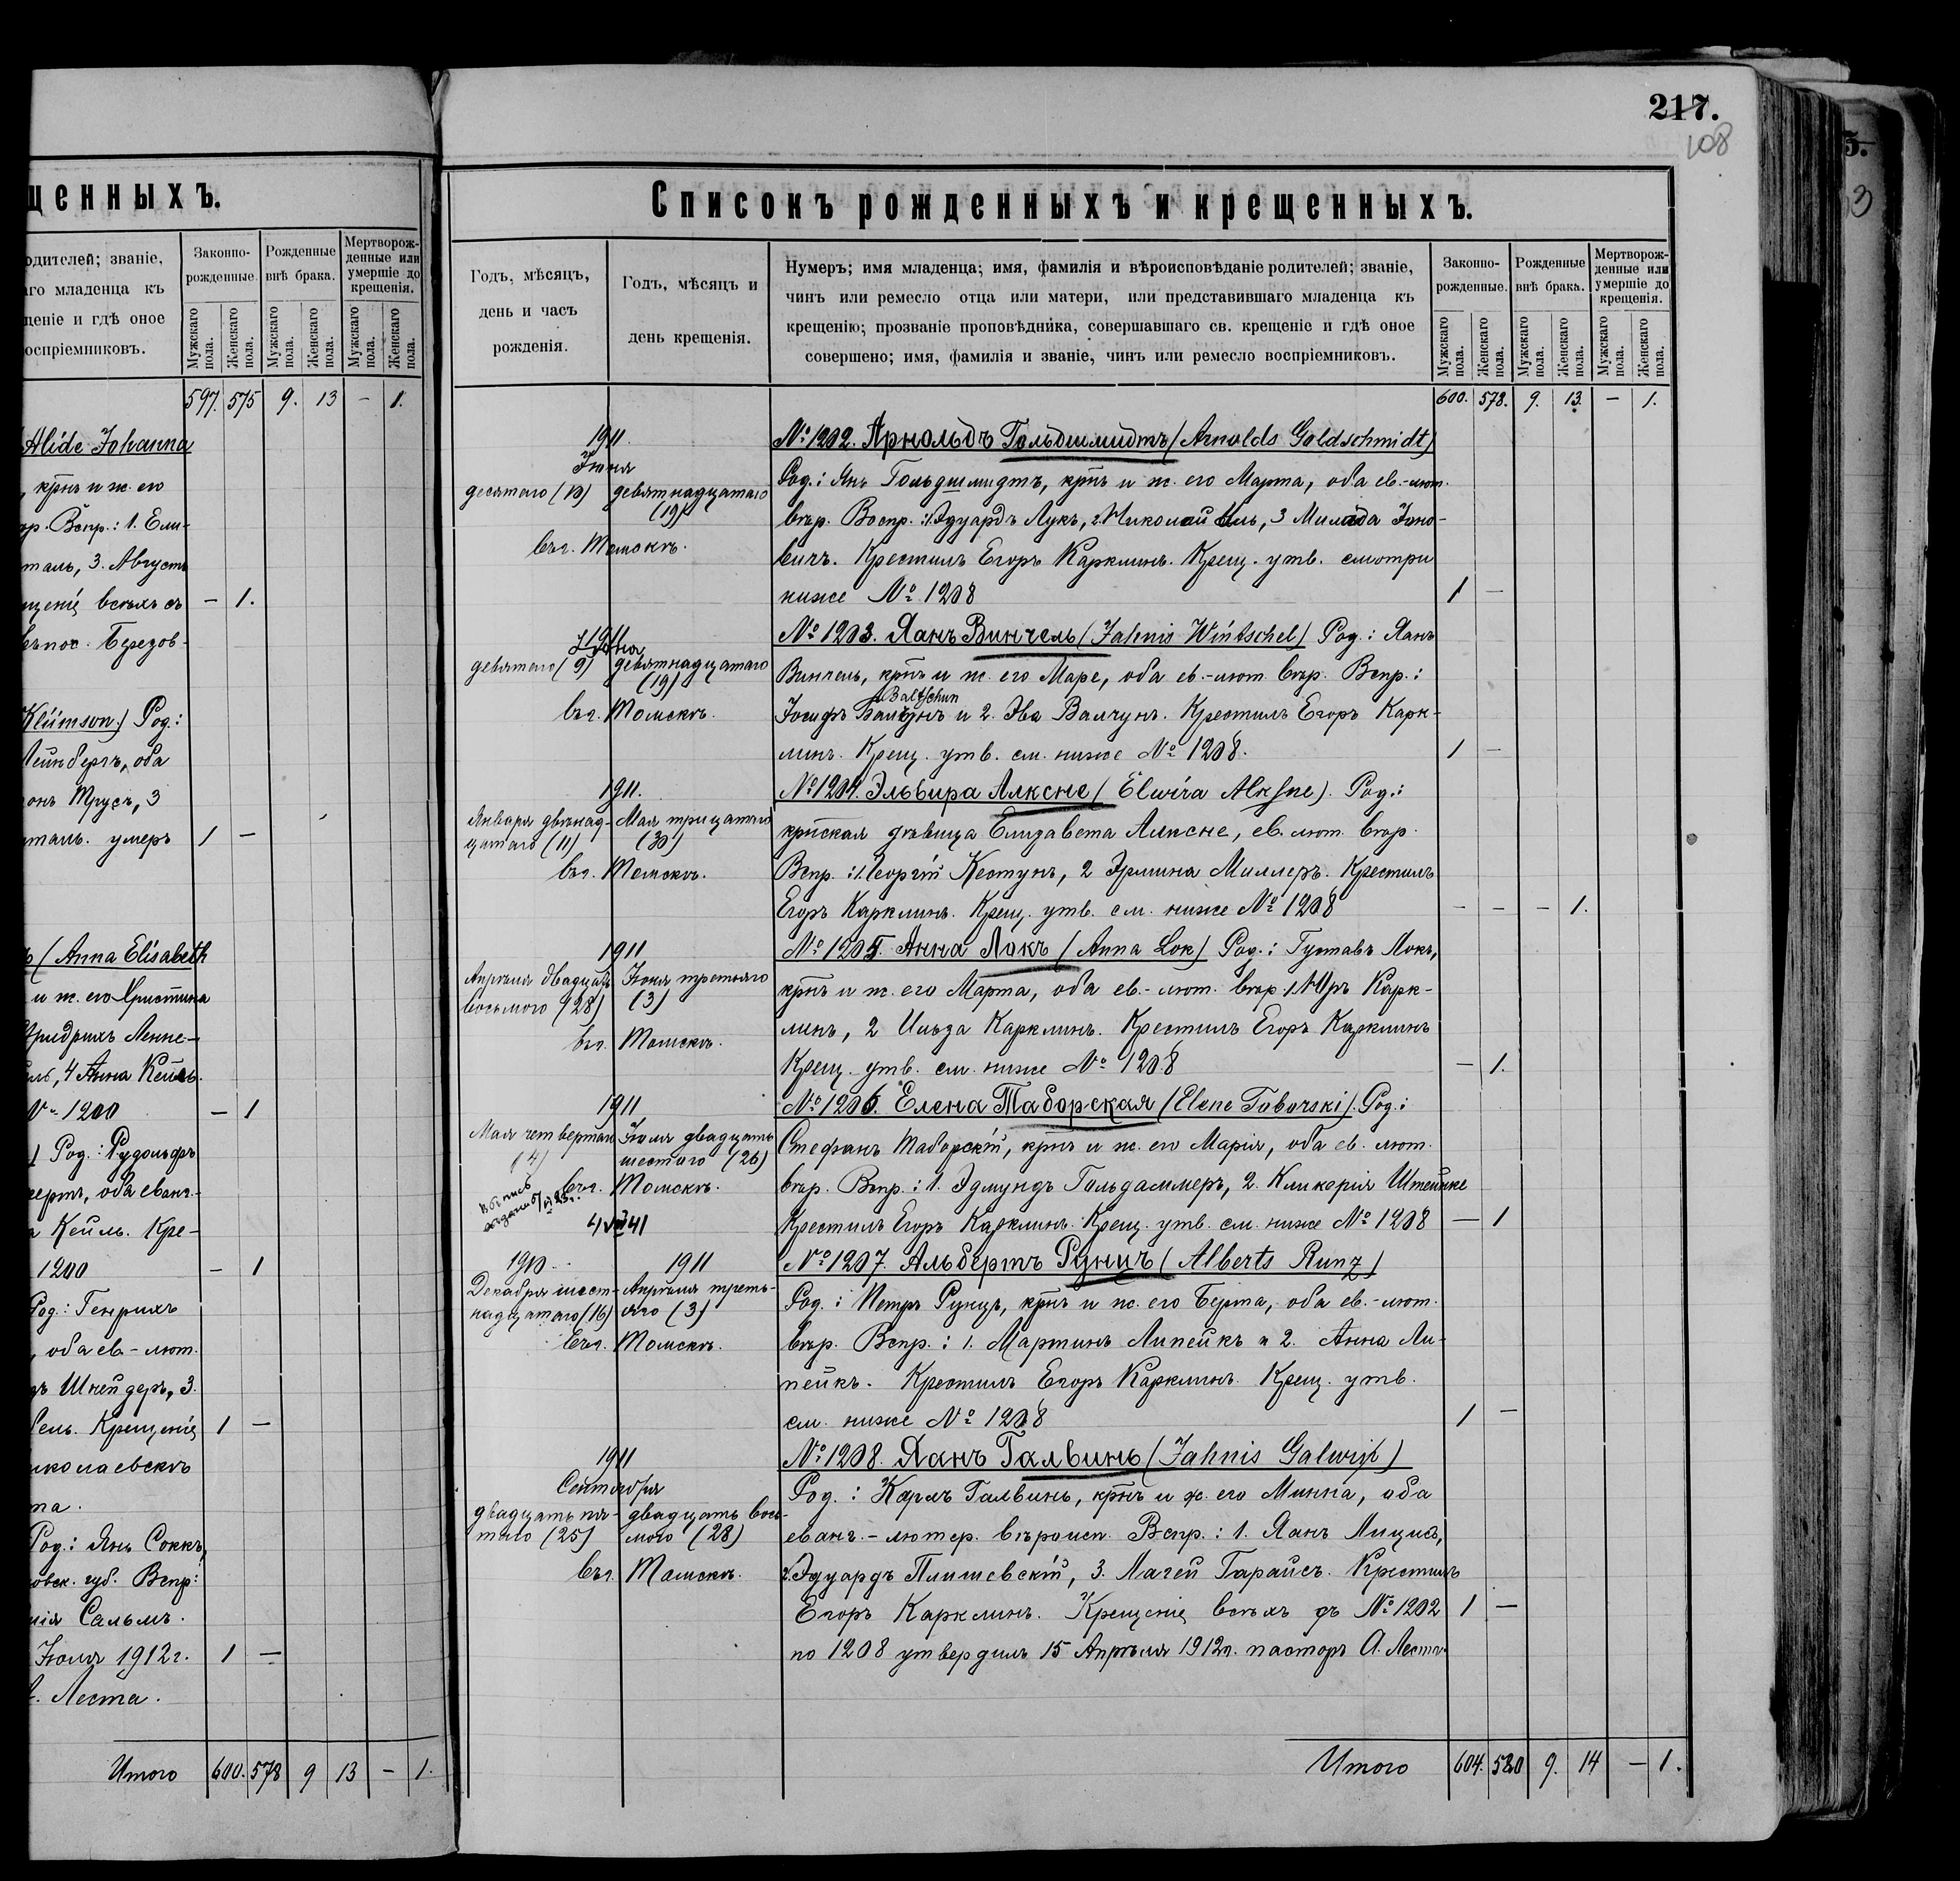 щенныхъ.
одителей; званіе,
аго младенца къ
щеніе и гдѣ оное
оспріемниковъ.
Законно-
рожденные.
Рожденные
внѣ брака.
Мертворож-
денные или
умершіе до
крещенія.
Мужскаго пола.
Женскаго пола.
Мужскаго пола.
Женскаго пола.
Мужскаго пола.
Женскаго пола.
597. 575 9. 13 – 1.
Alide Johanna
, крнъ и ж. его
ер. Вспр.: 1. Ели-
таль, 3. Августъ
щеніе всѣхъ съ – 1.
пос. Березов-
Klümson) Род:
Лейнбергъ, оба
онъ Трусъ, 3
таль. умеръ 1 –
(Anna Elisabeth
и ж. его Христина
Фридрихъ Ленне-
ль, 4 Анна Кейль.
№ 1200 – 1
Род.: Рудольфъ
ертъ, оба еванг.-
а Кейль. Кре-
1200 – 1
Род: Генрихъ
, оба ев-лют.
ъ Шнейдеръ, 3.
ель. Крещеніе 1 –
иколаевскъ
та.
Род.: Янъ Соккъ,
овск. губ. Вспр:
нія Сальмъ.
Іюля 1912 г. 1 –
А. Леста.
Итого 600. 578 9 13 – 1.
217.
108
Списокъ рожденныхъ и крещенныхъ.
Годъ, мѣсяцъ,
день и часъ
рожденія.
Годъ, мѣсяцъ и
день крещенія.
Нумеръ; имя младенца; имя, фамилія и вѣроисповѣданіе родителей; званіе,
чинъ или ремесло отца или матери, или представившаго младенца къ
крещенію; прозваніе проповѣдника, совершавшаго св. крещеніе и гдѣ оное
совершено; имя, фамилія и званіе, чинъ или ремесло воспріемниковъ.
Законно-
рожденные.
Рожденные
внѣ брака.
Мертворож-
денные или
умершіе до
крещенія.
Мужскаго пола.
Женскаго пола.
Мужскаго пола.
Женскаго пола.
Мужскаго пола.
Женскаго пола.
600. 578. 9. 13. – 1.
1911.
Іюня
десятаго (10) девятнадцатаго
(19)
въ г. Томскѣ.
№ 1202. Арнольдъ Гольдшмидтъ (Arnolds Goldschmidt)
Род.: Янъ Гольдшмидтъ, крнъ и ж. его Марта, оба ев.-лют.
вѣр. Воспр.: 1. Эдуардъ Лукъ, 2. Николай Иль, 3 Милада Јано-
вичъ. Крестилъ Егоръ Карклинъ. Крещ. утв. смотри
ниже № 1208 1 –
1911
Іюня
девятаго (9) девятнадцатаго
(19)
въ г. Томскѣ.
№ 1203. Яанъ Винчель (Jahnis Wintschel) Род.: Яанъ
Винчель, крнъ и ж. его Маре, оба ев.-лют. вѣр. Вспр.:
Baltschun
Іосифъ Балчунъ и 2. Эва Валчунъ. Крестилъ Егоръ Карк-
линъ. Крещ. утв. см. ниже № 1208. 1 –
1911.
Января двѣнад- Мая трицатаго
цатаго (11) (30)
въ г. Томскѣ.
№ 1204. Эльвира Алксне (Elwira Alksne). Род.:
крнская дѣвица Елизавета Алксне, ев. лют. вѣр.
Вспр.: 1. Георгій Кестунъ, 2 Эрмина Миллеръ. Крестилъ
Егоръ Карклинъ. Крещ. утв. см. ниже № 1208 – – – 1.
1911
Апрѣля двадцать Іюня третьяго
восьмого (28) (3)
въ г. Томскѣ.
№ 1205. Анна Локъ (Anna Lok) Род.: Густавъ Локъ,
крнъ и ж. его Марта, оба ев.-лют. вѣр. 1. Юръ Карк-
линъ, 2 Ильза Карклинъ. Крестилъ Егоръ Карклинъ
Крещ. утв. см. ниже № 1208 – 1.
1911
Мая четвертаго Іюля двадцать
(4) шестого (26)
въ г. Томскѣ.
4 VII 41
№ 1206. Елена Таборская (Elene Taborski). Род.:
Стефанъ Таборскій, крнъ и ж. его Марія, оба ев. лют.
вѣр. Вспр.: 1. Эдмундъ Гольдаммеръ, 2. Кликерія Штейнке
Крестилъ Егоръ Карклинъ. Крещ. утв. см. ниже № 1208 – 1
1910 1911
Декабря шест- Апрѣля треть-
надцатаго (16) яго (3)
въ г. Томскѣ.
№ 1207. Альбертъ Рунцъ (Alberts Runz)
Род.: Петръ Рунцъ, крнъ и ж. его Берта, оба ев.-лют.
вѣр. Вспр.: 1. Мартинъ Липейкъ и 2. Анна Ли-
пейкъ. Крестилъ Егоръ Карклинъ. Крещ. утв.
см. ниже № 1208 1 –
1911
Сентября
двадцать пя- двадцать вось-
таго (25) мого (28)
въ г. Томскѣ.
№ 1208. Яанъ Галвинь (Jahnis Galwiņ)
Род.: Карлъ Галвинь, крнъ и ж. его Минна, оба
еванг.-лютер. вѣроисп. Вспр.: 1. Яанъ Лицисъ,
2. Эдуардъ Плишевскій, 3. Магей Гарайсъ. Крестилъ
Егоръ Карклинъ. Крещеніе всѣхъ съ № 1202 1 –
по 1208 утвердилъ 15 Апрѣля 1912 г. пасторъ А. Леста.
Итого 604. 580 9. 14 – 1.